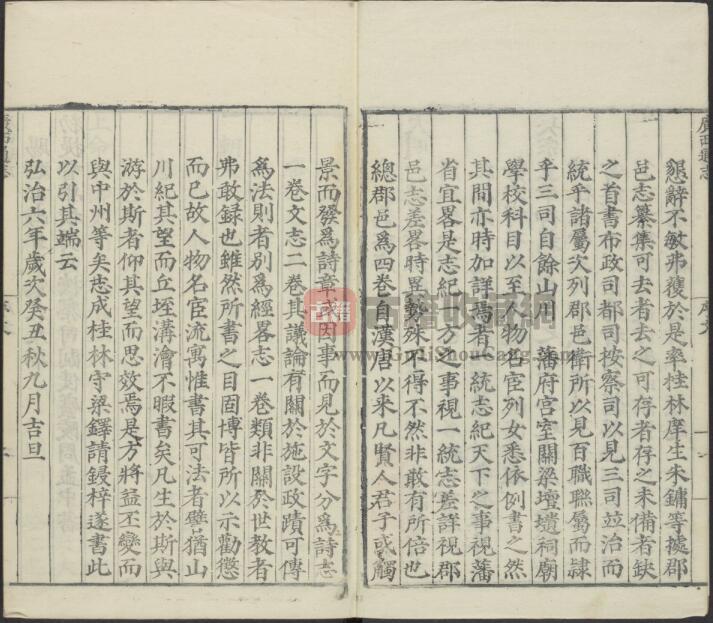 廣西通志
懇辭不敏弗獲於是率桂林庠生朱鏞等據郡
邑志纂集可去者去之可存者存之未備者缺
之首書布政司都司按察司以見三司竝治而
統乎諸屬次列郡邑衛所以見百職聮屬而隷
乎三司自餘山川藩府宮室關梁壇壝祠廟
學校科目以至人物名宦列女悉依例書之然
其間亦時加詳焉者一統志紀天下之事視藩
省宜畧是志紀一方之事視一統志差詳視郡
邑志差畧時異勢殊不得不然非敢有所倍也
總郡邑爲四卷自漢唐以來凡賢人君子或觸
景而發爲詩章或因事而見於文字分爲詩志
一卷文志二卷其議論有關於施設政蹟可傳
爲法則者别爲經畧志一卷類非關於世教者
弗敢録也雖然所書之目固博皆所以示勸懲
而已故人物名宦流寓惟書其可法者譬猶山
川紀其望而丘垤溝澮不暇書矣凡生於斯與
游於斯者仰其望而思效焉是方將益丕變而
與中州等矣志成桂林守梁鐸請鋟梓遂書此
以引其端云
弘治六年歲次癸丑秋九月吉旦
古籍
古籍收藏網
www.GujiShouCang.com